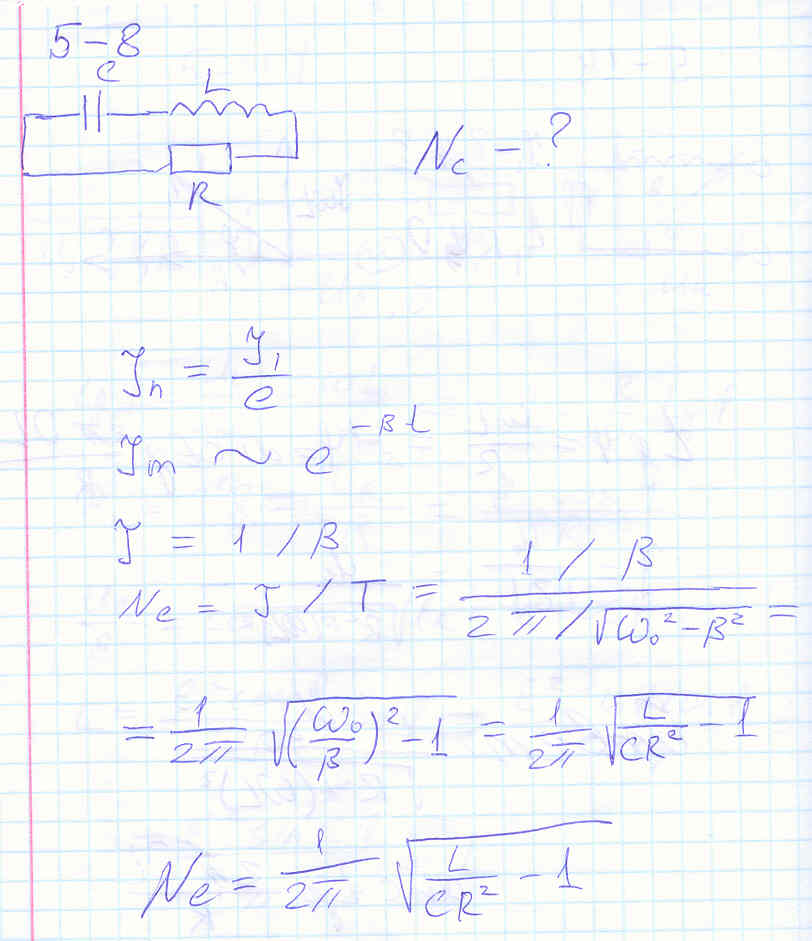 5-8
C L
R
N_c - ?
J_n = J_1 / e
J_m ~ e^{-βt}
J = 1 / β
N_e = J / T = (1 / β) / (2π / √(ω_0^2 - β^2)) =
= 1/(2π) √((ω_0/β)^2 - 1) = 1/(2π) √(L/(CR^2) - 1)
N_e = 1/(2π) √(L/(CR^2) - 1)